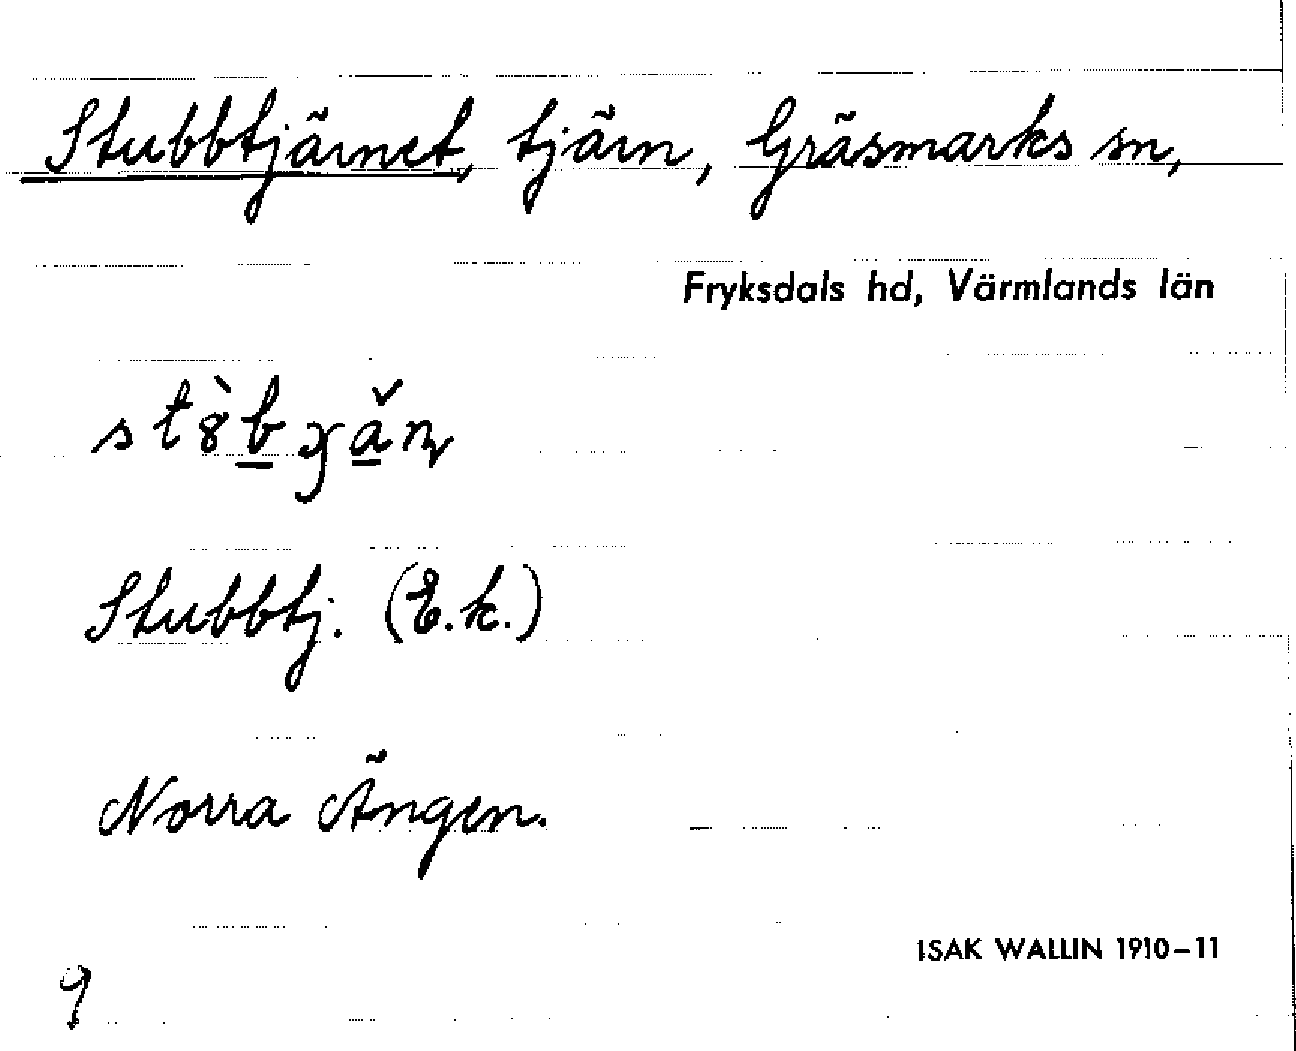 Stubbtjärnet, tjärn, Gräsmarks sn,
Fryksdals hd, Värmlands län
Stubbtj. (E.k.)
Norra Ängen.
ISAK WALLIN 1910–11
9